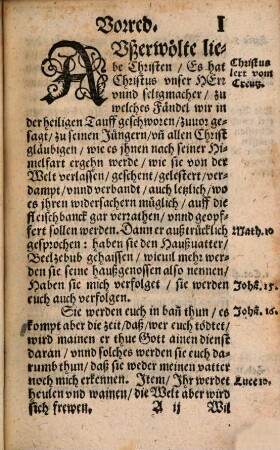 Vorred. I
AVßerwölte lie-
be Christen / Es hat
Christus vnser HErr
vnnd seligmacher / zu
welches Fändel wir in
der heiligen Tauff geschworen / zuuor ge-
sagt / zu seinen Jüngern / vñ allen Christ
gläubigen / wie es jhnen nach seiner Hi-
melfart ergehn werde / wie sie von der
Welt verlassen / geschent / gelestert / ver-
dampt / vnnd verbandt / auch letzlich / wo
es jhren widersachern müglich / auff die
fleischbanck gar verrathen / vnnd geopf-
fert sollen werden. Dann er außtrücklich
gesprochen : haben sie den Haußuatter /
Beelzebub gehaissen / wieuil mehr wer-
den sie seine haußgenossen also nennen /
Haben sie mich verfolget / sie werden
euch auch verfolgen.
Sie werden euch in bañ thun / es
kompt aber die zeit / daß / wer euch tödtet /
wird mainen er thue Gott ainen dienst
daran / vnnd solches werden sie euch da-
rumb thun / daß sie weder meinen vatter
noch mich erkennen. Item / Jhr werdet
heulen vnd wainen / die Welt aber wird
sich frewen. A ij Wil
Christus
lert vom
Creutz.
Math.10
Johã.15.
Johã.16.
Luce 10.